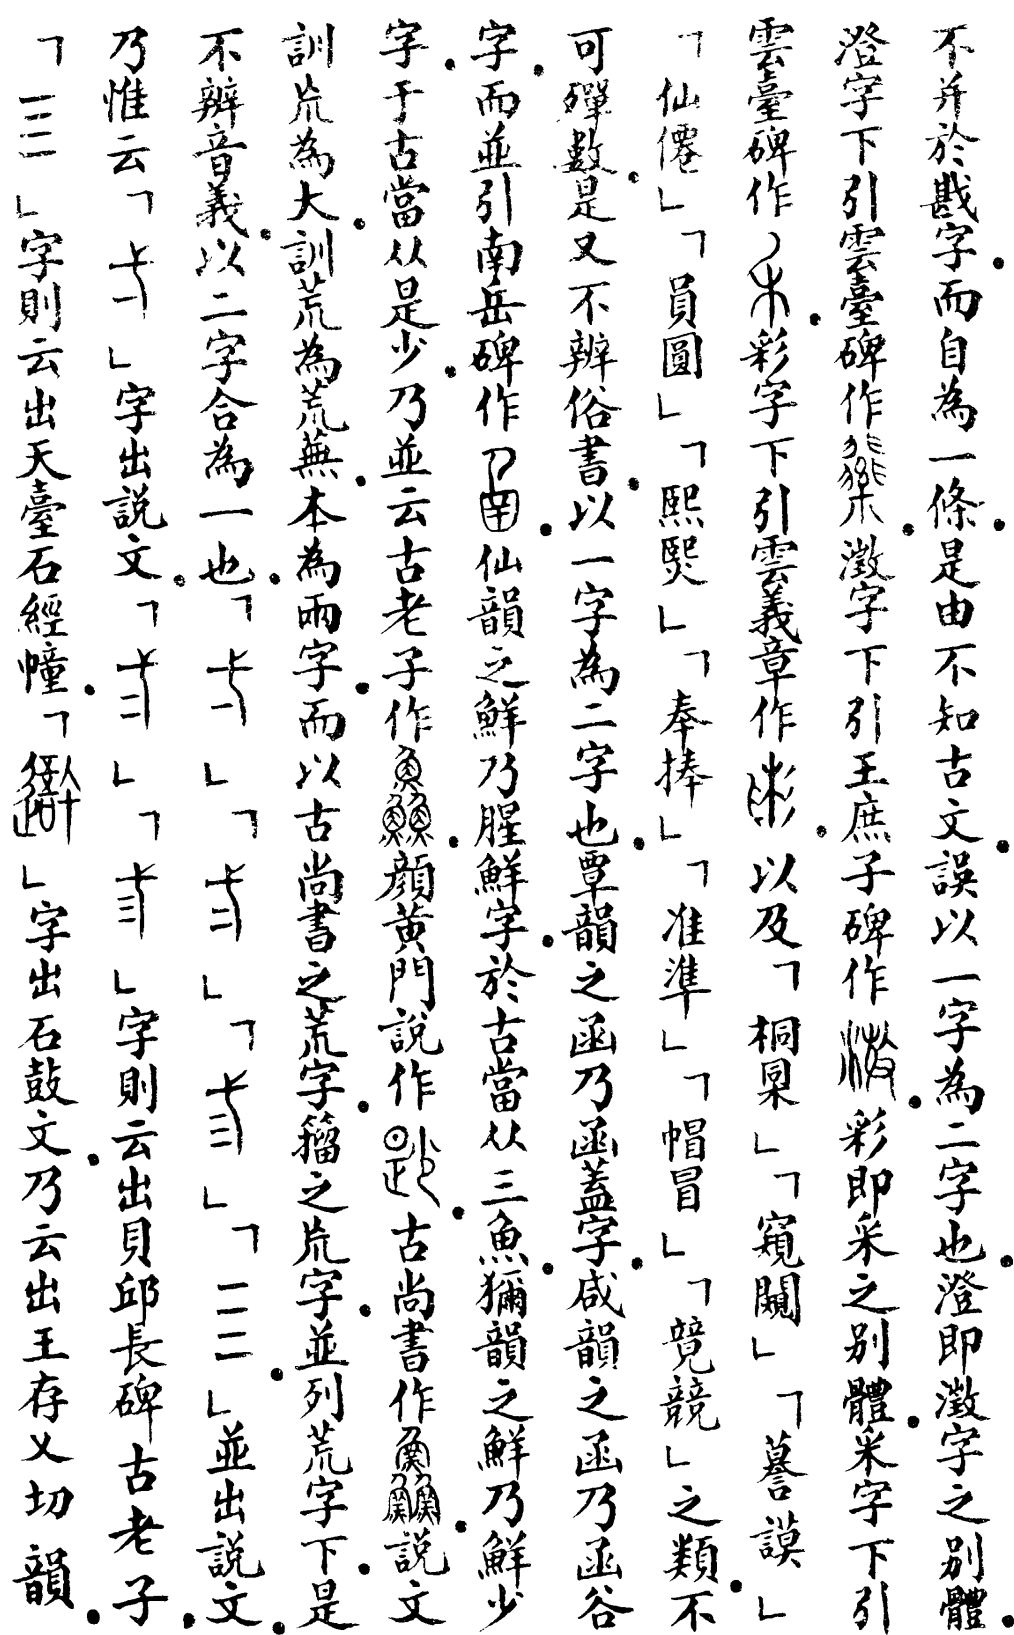 不并於戡字。而自為一條。是由不知古文。誤以一字為二字也。澄即澂字之别體。
澄字下引雲臺碑作。澂字下引王庶子碑作。彩即采之别體。采字下引
雲臺碑作。彩字下引雲義章作。以及「桐𣕙」「窺闚」「謩謨」
「仙僊」「員圓」「熙煕」「奉捧」「准準」「帽冒」「竟競」之類。不
可殫數。是又不辨俗書。以一字為二字也。覃韻之函乃函蓋字。咸韻之函乃函谷
字。而並引南岳碑作。仙韻之鮮乃腥鮮字。於古當从三魚。獮韻之鮮乃鮮少
字。于古當从是少。乃並云古老子作。顏黄門說作。古尚書作。説文
訓巟為大。訓荒為荒蕪。本為兩字。而以古尚書之荒字。籀之巟字。並列荒字下。是
不辨音義。以二字合為一也。「」「」「」「一二三」並出説文。
乃惟云「」字出説文。「」「」字則云出貝邱長碑古老子。
「一二三」字則云出天臺石經幢。「」字出石鼓文。乃云出王存乂切韻。